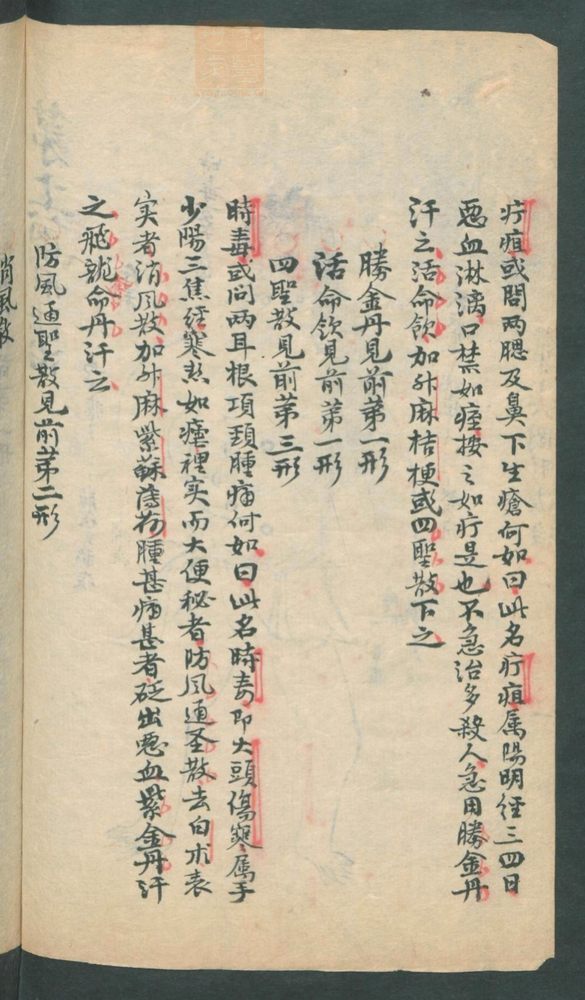 疔疽或問兩腮及鼻下生瘡何如曰此名疔疽属陽明経三四日
惡血淋漓口禁如痙按之如疔是也不急治多殺人急用勝金丹
汗之活命飲加升麻桔梗或四聖散下之
勝金丹見前第一形
活命飲見前第一形
四聖散見前第三形
時毒或問兩耳根項頚腫痛何如曰此名時毒即大頭傷寒属手
少陽三焦経寒熱如瘧裡实而大便秘者防风通圣散去白术表
实者消风散加升麻紫蘇薄荷腫甚痛甚者砭出惡血紫金丹汗
之飛龍命丹汗之
防風通聖散見前第二形
消風散